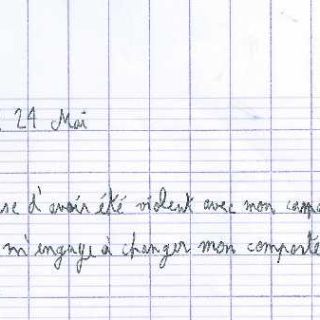 24 Mai
se d'avoir été violent avec mon cama
m'engage à changer mon comporte